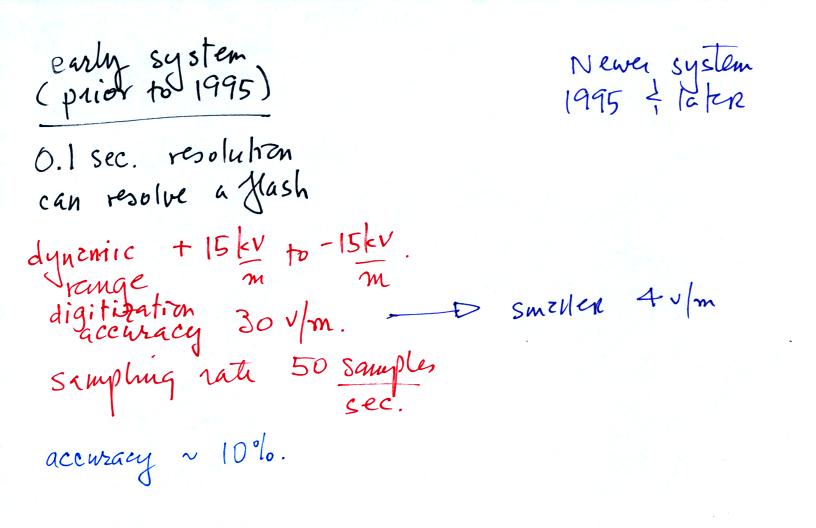 early system
(prior to 1995)
Newer system
1995 & later
0.1 sec. resolution
can resolve a flash
dynamic range + 15 kV/m to - 15 kV/m.
digitization accuracy 30 V/m. → smaller 4 V/m
sampling rate 50 samples/sec.
accuracy ~ 10%.